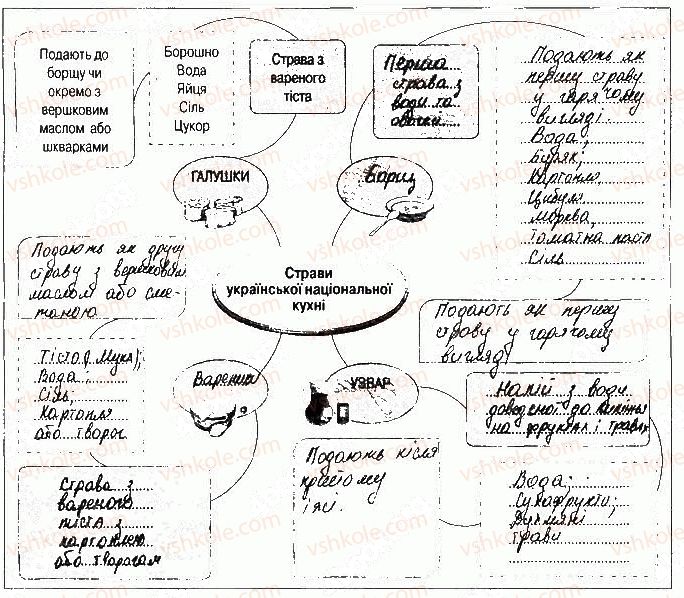 Подають до
борщу чи
окремо з
вершковим
маслом або
шкварками
Борошно
Вода
Яйця
Сіль
Цукор
Страва з
вареного
тіста
Перша
страва з
води та
овочів
Подають як
першу страву
у гарячому
вигляді
Вода,
Буряк;
Картопля,
Цибуля
Морква,
Томатна паста
Сіль
ГАЛУШКИ
Борщ
Подають як другу
страву з вершковим
маслом або сме-
таною
Страви
української національної
кухні
Подають як першу
страву у гарячому
вигляді
Тісто (Мука);
Вода;
Сіль;
Картопля
або творог
Вареники
УЗВАР
Напій з води
доведеної до кипіння
на фруктах і травах
Страва з
вареного
тіста з
картоплею
або творогом
Подають після
прийому
їжі.
Вода;
Сухофрукти;
трави
vshkole.com